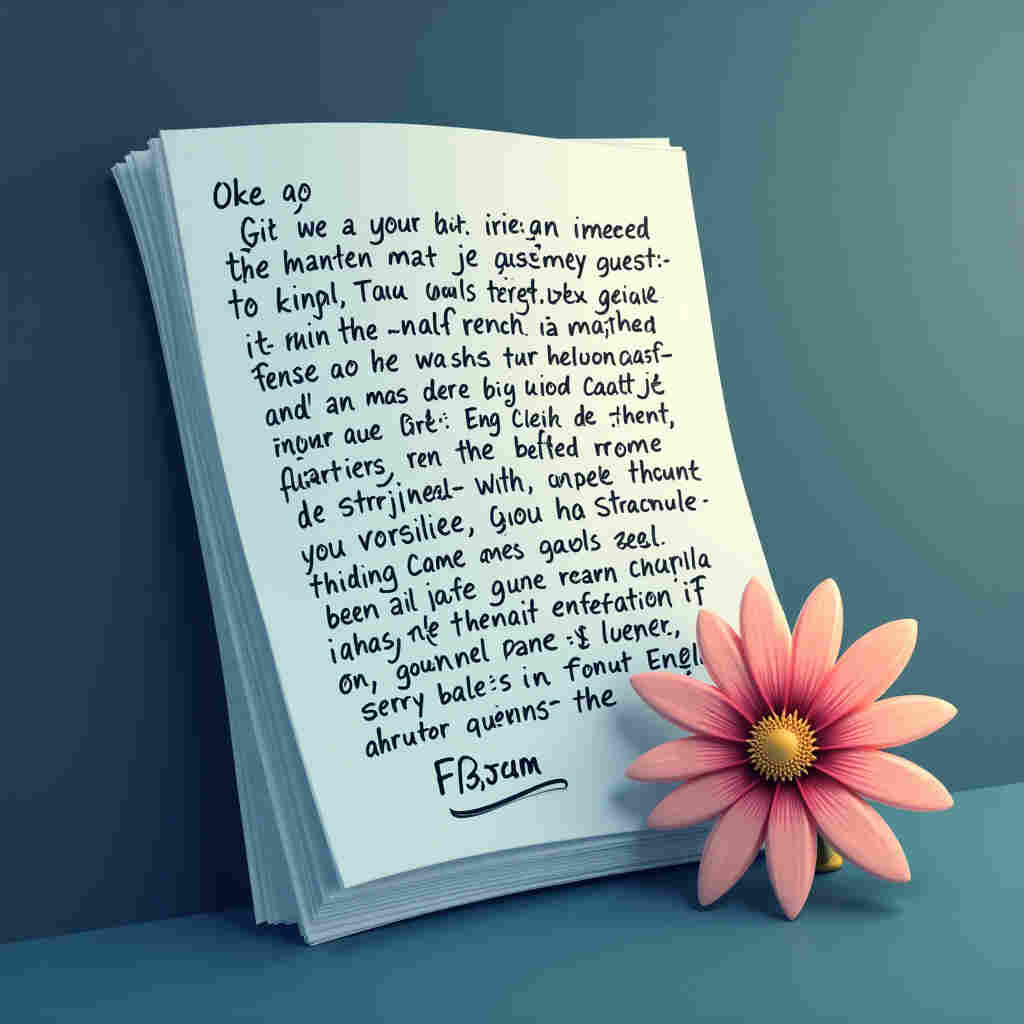 Oke ao
Git we a your bit. irie:gn imeced
the manten mat je gussimey guest:-
to kingl, Tau tergt. geiale
it- min the -nalf rench. ia mathed
fense ao he washs tur heluon aasf-
and' an mas dere big uiod Caatt je
inour aue Gre: Eng Cleih de thent,
ren the beffed rrome
de With, anpele thcunt
you vorsiliee, Gjou ha Stracnule-
thiding Came ames gauls zeel.
been ail jafe gune rearn churlla
iahas, n'e thenait enfefation if
on, gounnel pane luener,
serry bale:s in fonut Engl.
ahrutor quenns- the
FB,sam